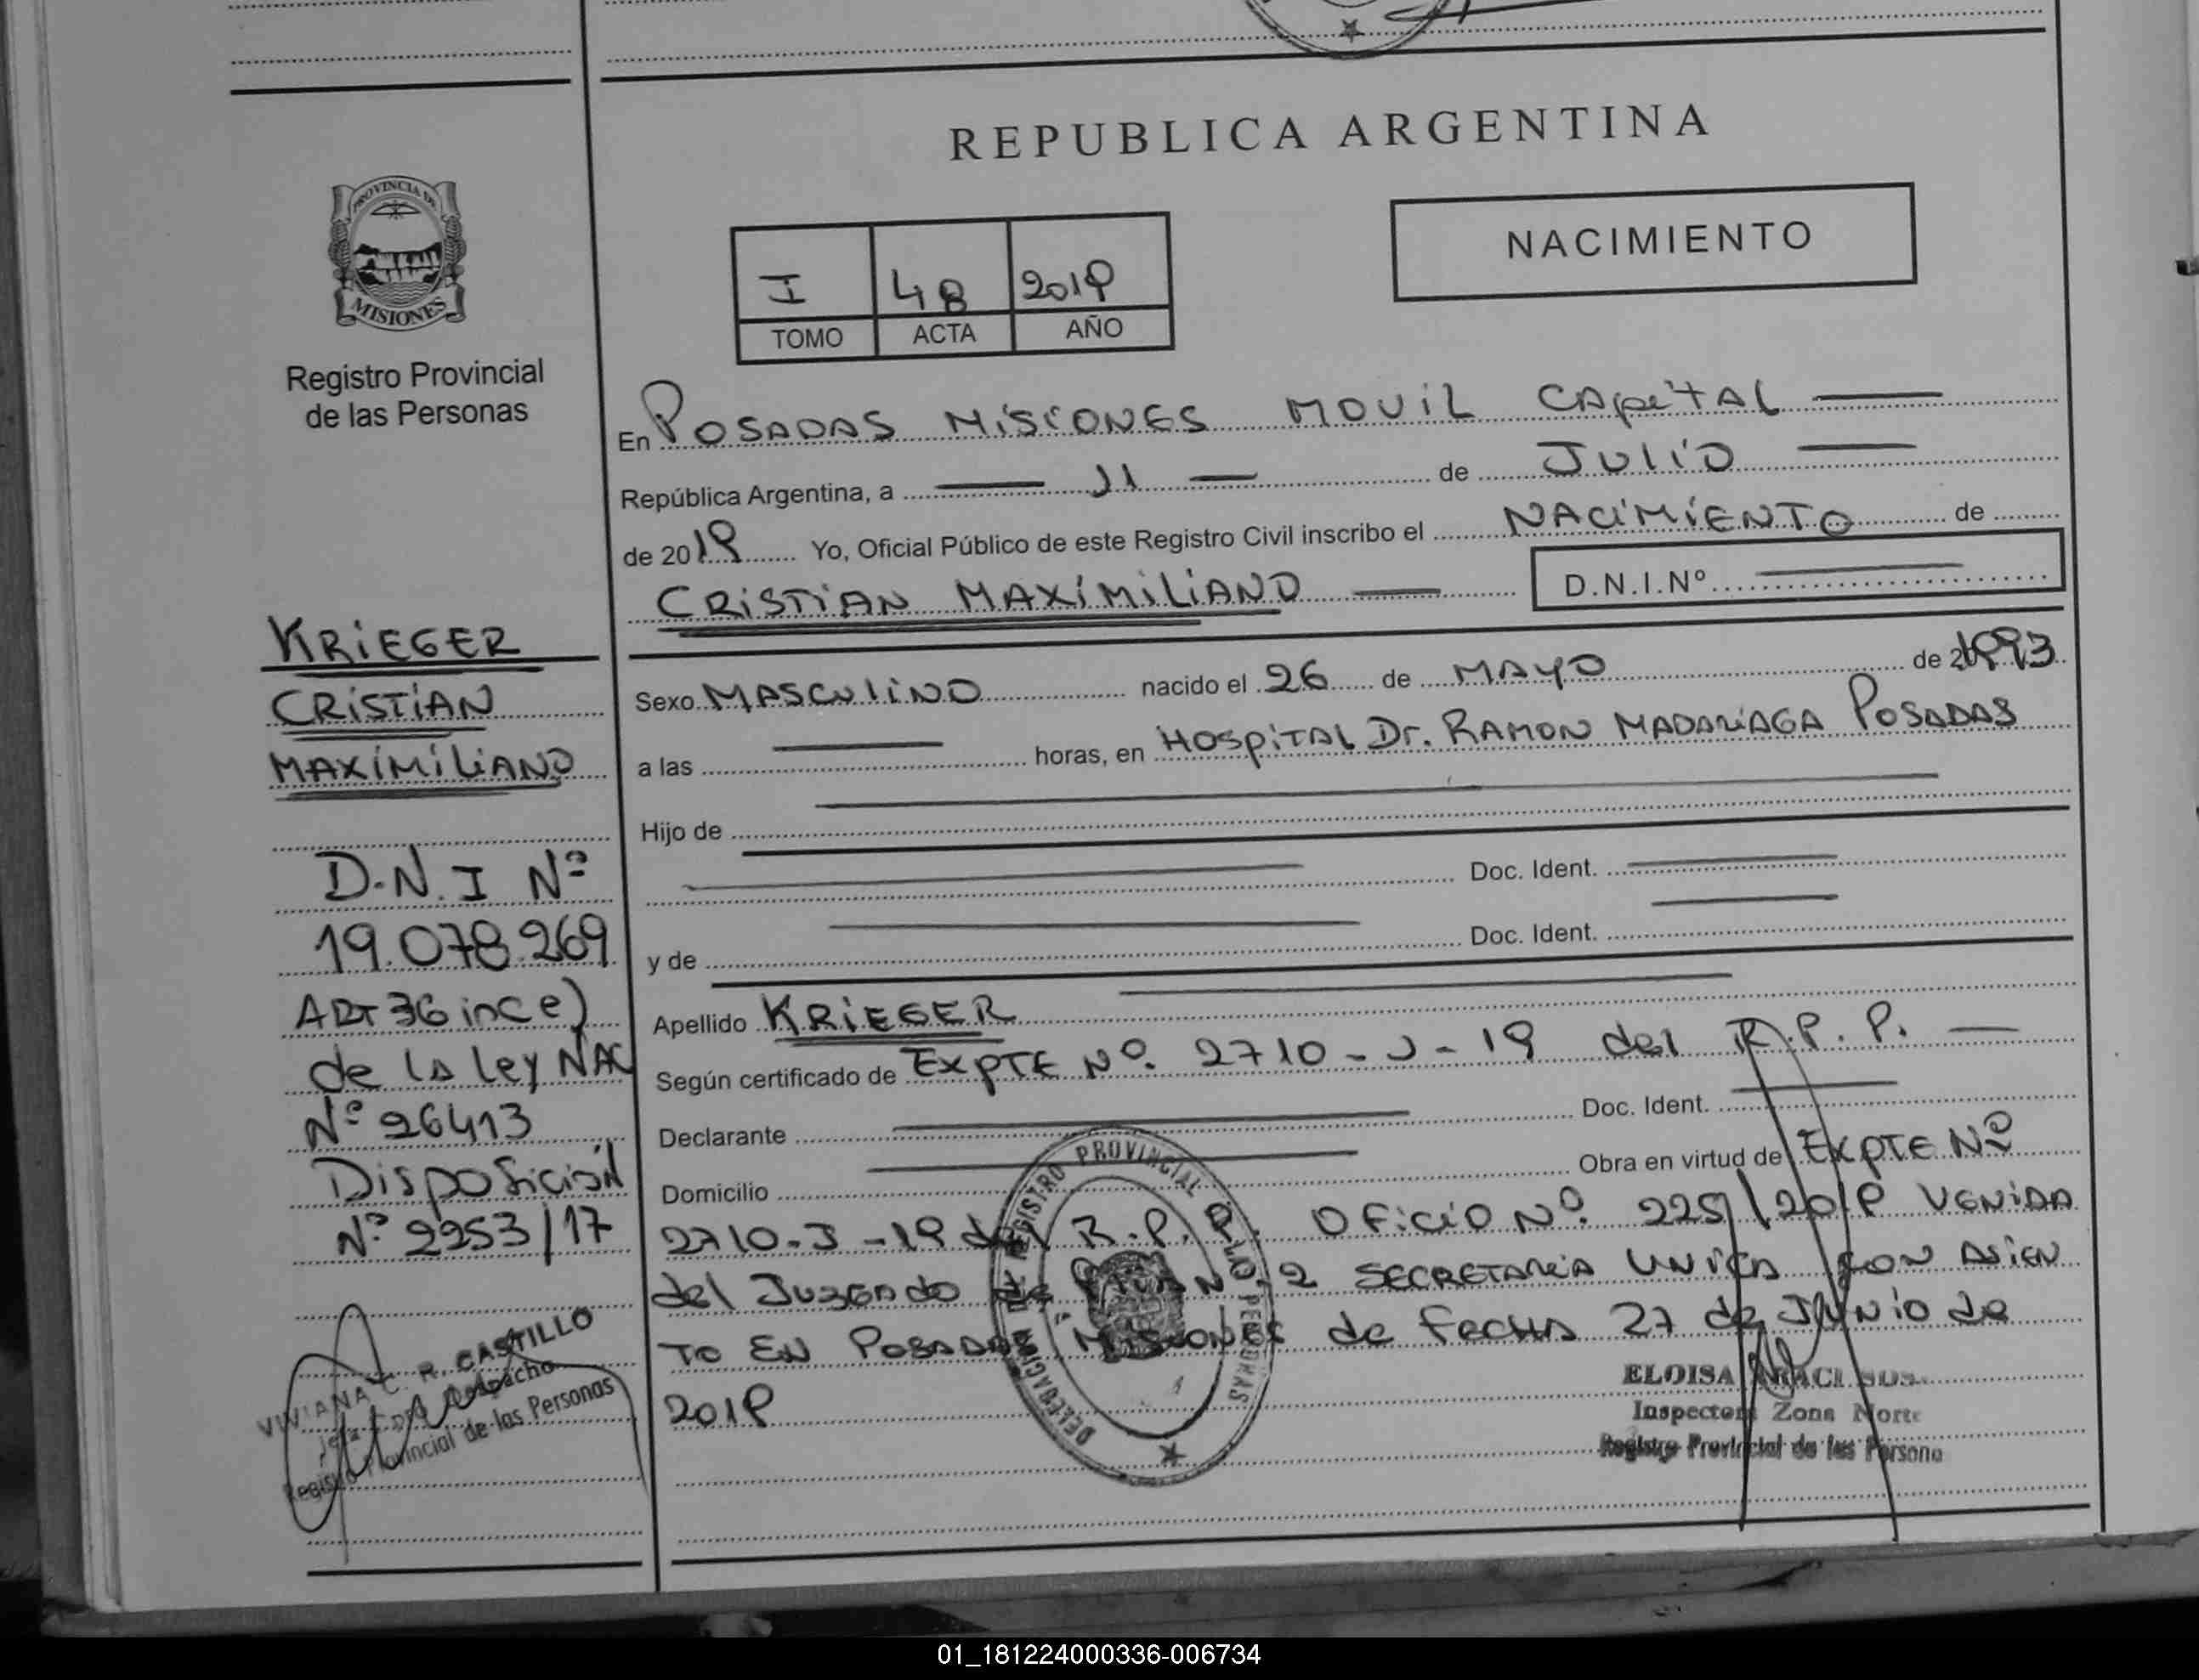 REPUBLICA ARGENTINA
PROVINCIA DE
MISIONES
Registro Provincial
de las Personas
NACIMIENTO
I 48 2019
TOMO ACTA AÑO
En POSADAS MISIONES MOVIL CAPITAL
República Argentina, a 11 de JULIO
de 2019 Yo, Oficial Público de este Registro Civil inscribo el NACIMIENTO de
CRISTIAN MAXIMILIANO D.N.I.Nº
KRIEGER
CRISTIAN
MAXIMILIANO
D.N.I Nº
19.078.269
ART 36 inc e)
de la Ley NAC
Nº 26413
Disposición
Nº 2253/17
VIVIANA C. R. CASTILLO
Jefa Dpto Despacho
Registro Provincial de las Personas
Sexo MASCULINO nacido el 26 de MAYO de 1993
a las horas, en HOSPITAL Dr. RAMON MADARIAGA POSADAS
Hijo de
Doc. Ident.
y de Doc. Ident.
Apellido KRIEGER
Según certificado de EXPTE Nº. 2710-J-19 del R.P.P.
Declarante Doc. Ident.
Domicilio Obra en virtud de EXPTE Nº
2710-J-19 del R.P.P. OFICIO Nº. 225/2019 VENIDA
del JUZGADO de Nº 2 SECRETARIA UNICA CON ASIEN
TO EN POSADAS MISIONES de FECHA 27 de JUNIO de
2019
REGISTRO PROVINCIAL DE LAS PERSONAS
DELEGACION
ELOISA ARACI SOS
Inspectora Zona Norte
Registro Provincial de las Persona
01_181224000336-006734